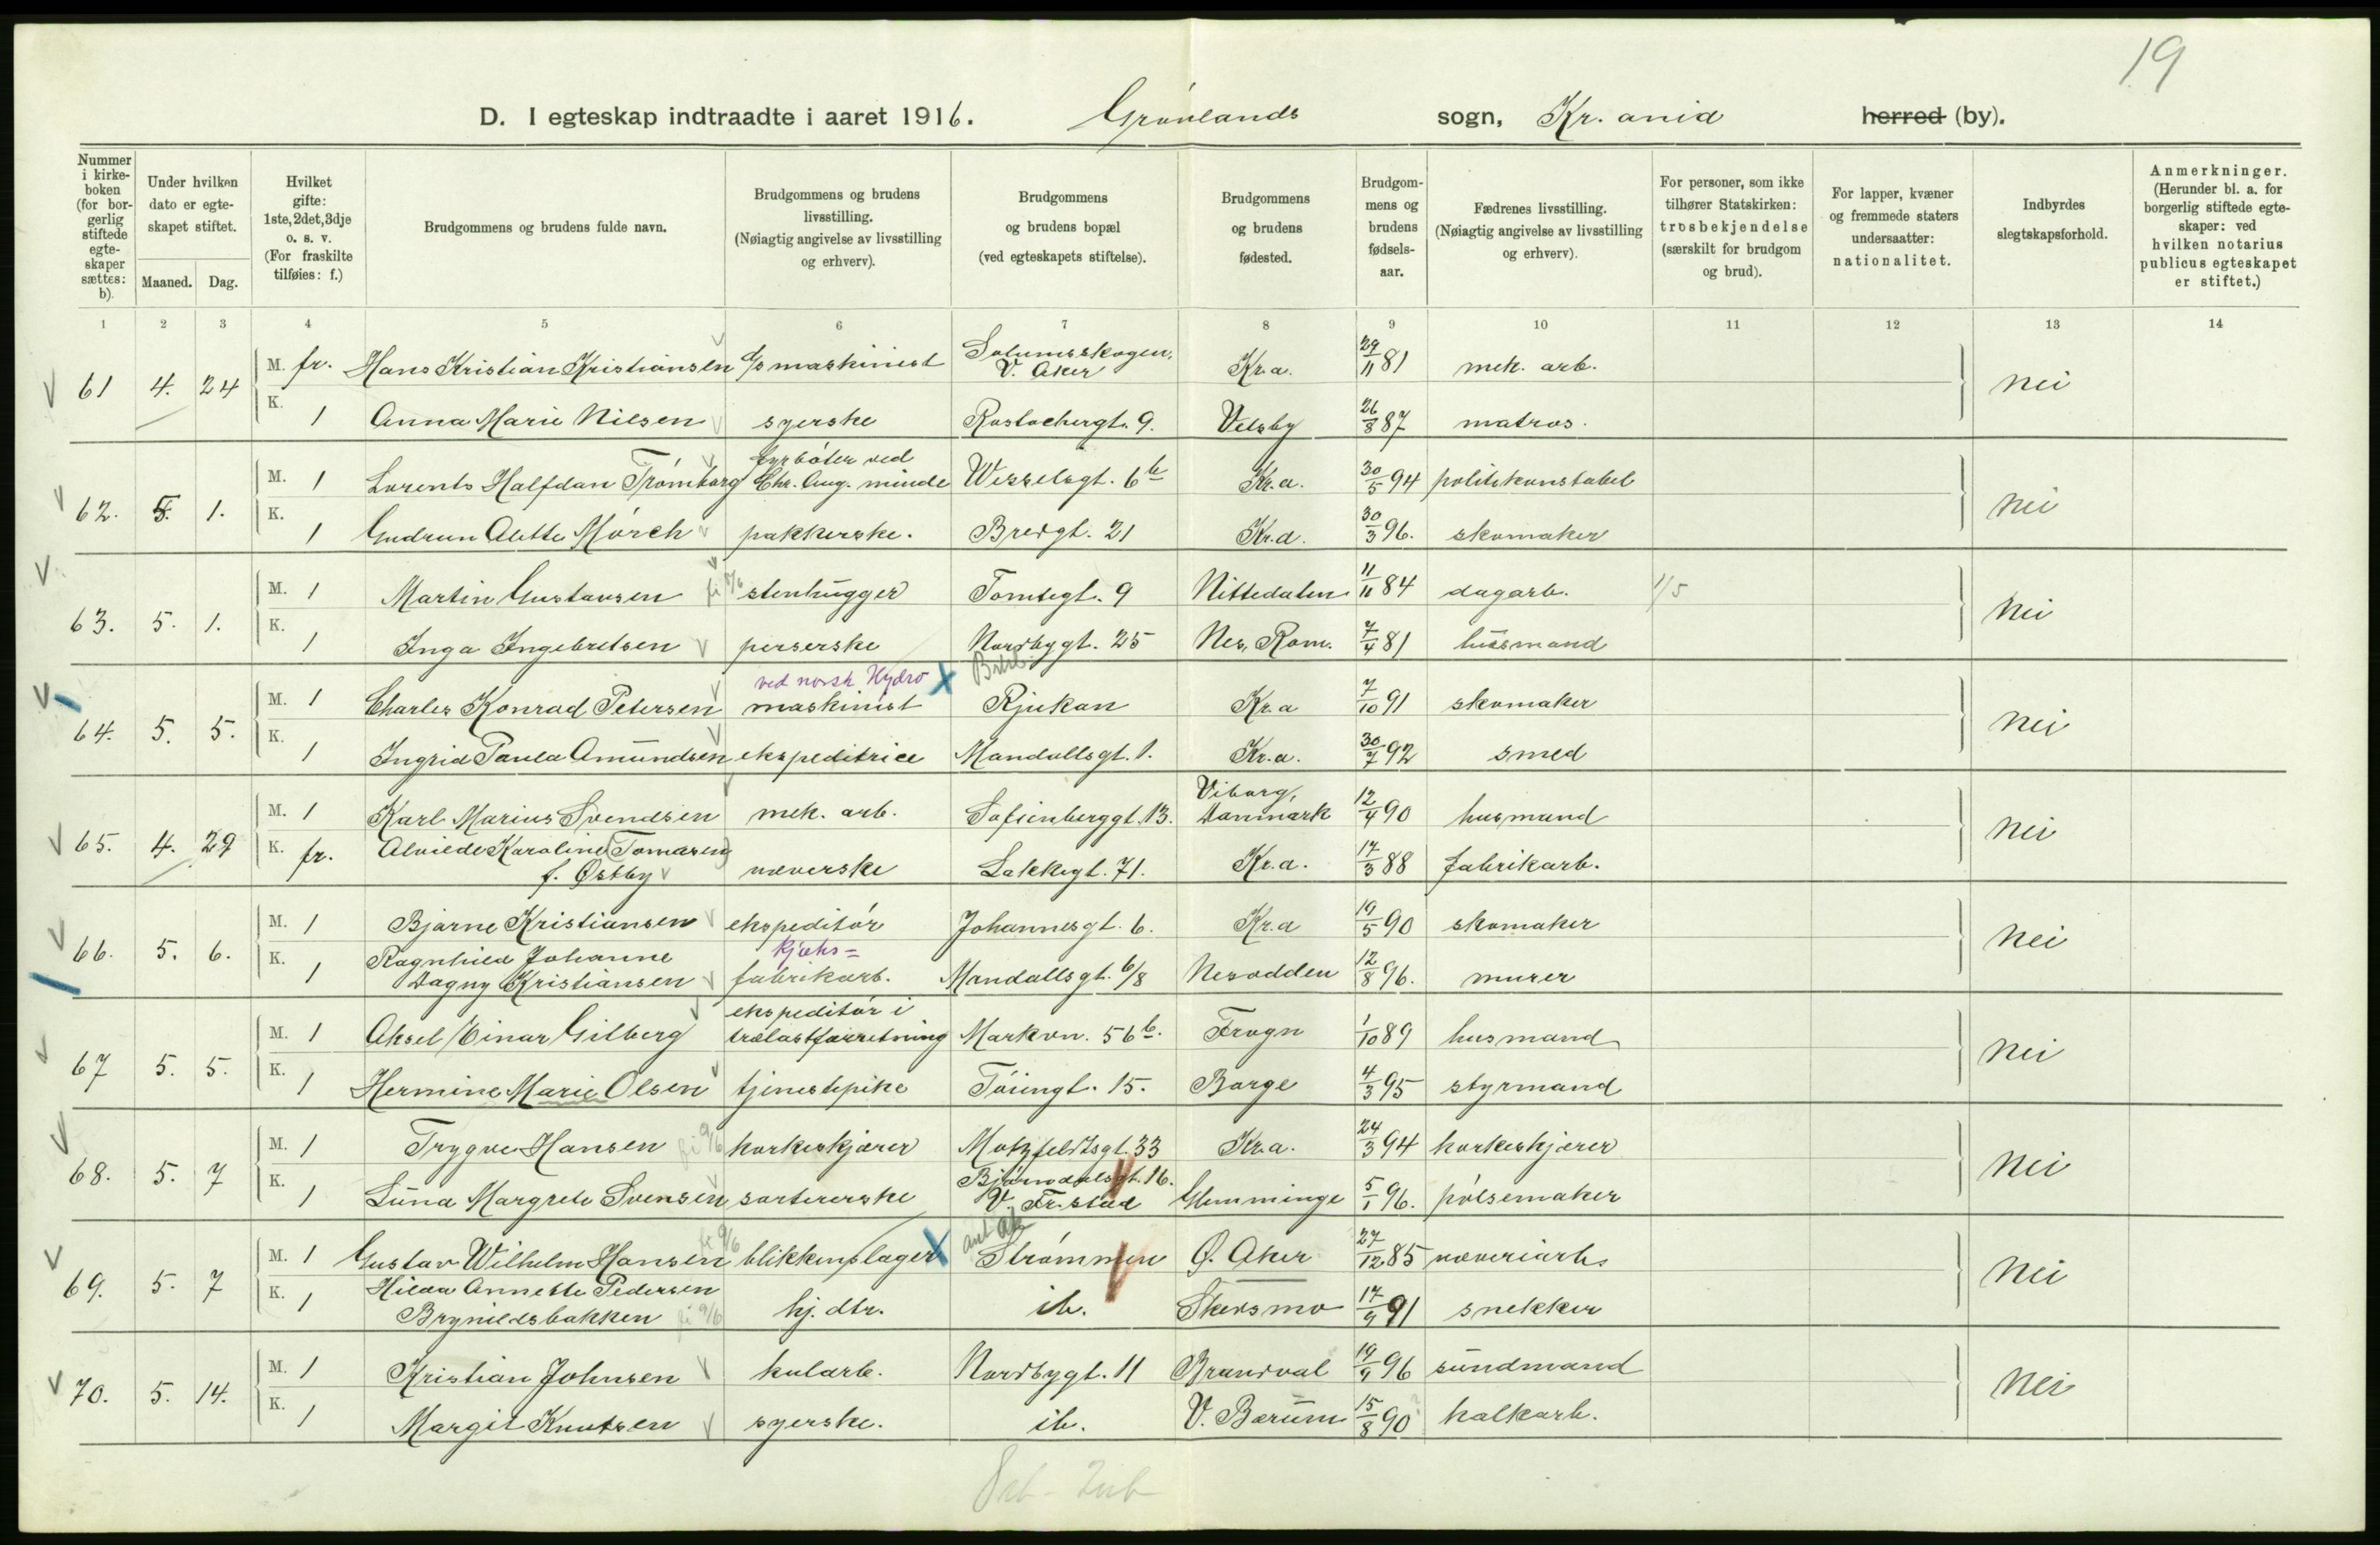 19
D. I egteskap indtraadte i aaret 1916. Grønlands sogn, Kr.ania herred (by).
Nummer i kirkeboken (for borgerlig stiftede egteskaper sættes: b).
Under hvilken dato er egteskapet stiftet.
Maaned. Dag.
Hvilket gifte: 1ste, 2det, 3dje o. s. v. (For fraskilte tilføies: f.)
Brudgommens og brudens fulde navn.
Brudgommens og brudens livsstilling. (Nøiagtig angivelse av livsstilling og erhverv).
Brudgommens og brudens bopæl (ved egteskapets stiftelse).
Brudgommens og brudens fødested.
Brudgommens og brudens fødselsaar.
Fædrenes livsstilling. (Nøiagtig angivelse av livsstilling og erhverv).
For personer, som ikke tilhører Statskirken: trosbekjendelse (særskilt for brudgom og brud).
For lapper, kvæner og fremmede staters undersaatter: nationalitet.
Indbyrdes slegtskapsforhold.
Anmerkninger. (Herunder bl. a. for borgerlig stiftede egteskaper: ved hvilken notarius publicus egteskapet er stiftet.)
1 2 3 4 5 6 7 8 9 10 11 12 13 14
61 4. 24 M. fr. Hans Kristian Kristiansen maskinist Solumsskogen, V. Aker Kr.a. 29/11 81 mek. arb. nei
K. 1 Anna Marie Nilsen syerske Rostockergt. 9. Velsby 26/8 87 matros.
62. 5. 1. M. 1 Lorents Halfdan Trømborg fyrbøter ved Chr. Aug. minde Wesselsgt. 6b Kr.a. 30/5 94 politikonstabel nei
K. 1 Gudrun Alette Mørch pakkerske. Bredgt. 21 Kr.a. 30/3 96. skomaker
63. 5. 1. M. 1 Martin Gustavsen stenhugger Tomtegt. 9 Nittedalen 11/11 84 dagarb. 1/5 nei
K. 1 Inga Ingebretsen perserske Nordbygt. 25 Nes, Rom. 7/4 81 husmand
64. 5. 5. M. 1 Charles Konrad Petersen ved norsk Hydro maskinist Rjukan Kr.a 7/10 91 skomaker nei
K. 1 Ingrid Paula Amundsen ekspeditrice Mandallsgt. 1. Kr.a. 30/7 92 smed
65. 4. 29 M. 1 Karl Marius Svendsen mek. arb. Sofienberggt. 13. Viborg, Danmark 12/4 90 husmand nei
K. fr. Alvilde Karoline Tomasen f. Østby væverske Lakkegt. 71. Kr.a. 17/3 88 fabrikarb.
66. 5. 6. M. 1 Bjarne Kristiansen ekspeditør Johannesgt. 6. Kr.a 19/5 90 skomaker nei
K. 1 Ragnhild Johanne Dagny Kristiansen kjæks= fabrikarb. Mandallsgt. 6/8 Nesodden 12/8 96. murer
67 5. 5. M. 1 Aksel Einar Gilberg ekspeditør i trælastforretning Markvn. 56b. Frogn 1/10 89 husmand nei
K. 1 Hermine Marie Olsen tjenestepike Tøiengt. 15. Borge 4/3 95 styrmand
68. 5. 7 M. 1 Trygve Hansen 9/6 korkeskjærer Motzfeldtsgt. 33 Kr.a. 24/3 94 korkeskjærer nei
K. 1 Luna Margrete Svensen sortererske Bjørndalsgt. 16. V. Fr.stad Glemminge 5/1 96. pølsemaker
69. 5. 7 M. 1 Gustav Wilhelm Hansen 9/6 blikkenslager Strømmen Ø. Aker 27/12 85 væveriarb. nei
K. 1 Hilda Annette Pedersen Brynildsbakken 9/6 hj. dtr. ib. Skedsmo 17/9 91 snekker
70. 5. 14. M. 1 Kristian Johnsen kularb. Nordbygt. 11 Brandval 19/9 96 sundmand nei
K. 1 Margit Knutsen syerske. ib. V. Bærum 15/8 90 kalkarb.